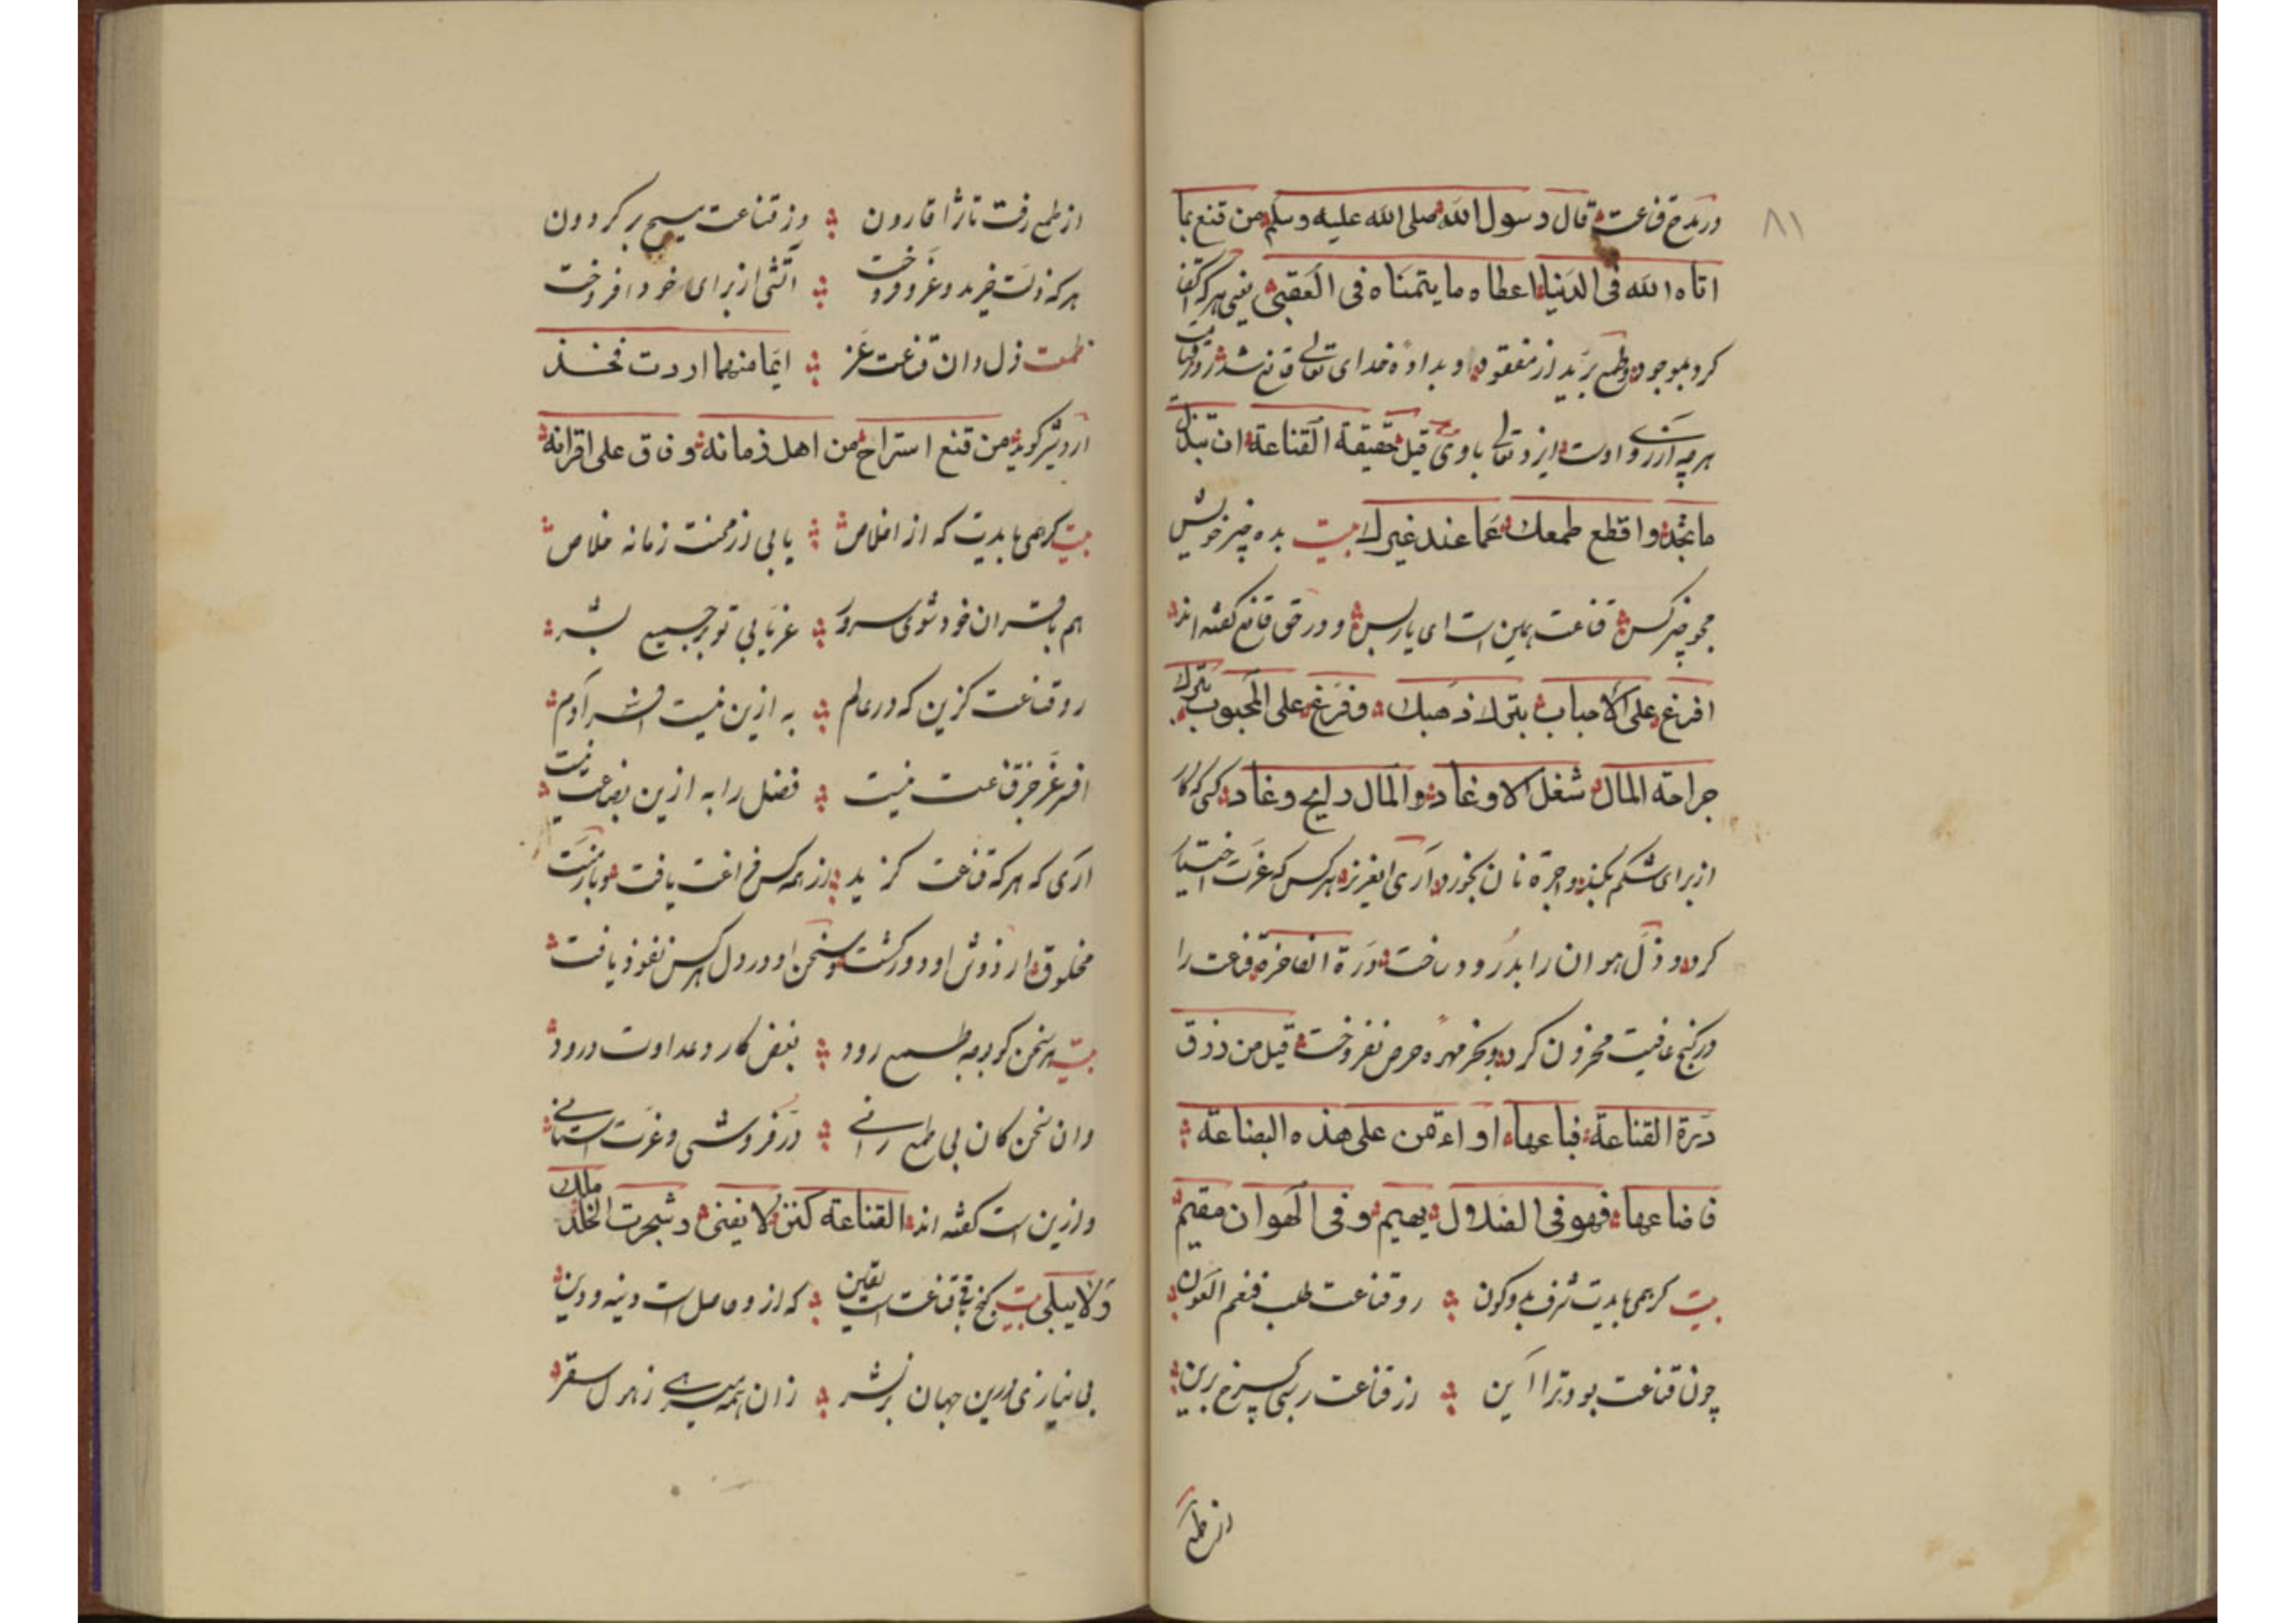 ۸۱
در مدح قناعت قال رسول الله صلی الله علیه وسلم من قنع بما
اتاه الله فی الدنیا اعطاه ما یتمناه فی العقبی یعنی هرکه اکتفا
کرد بموجود و طمع برید از مفقود و بداده خدای تعالی قانع شد روز قیامت
هرچه آرزوی اوست ایزد تعالی باوی قیل حقیقة القناعة ان تبذل
ما تجد و اقطع طمعك عما عند غیرك بیت بده چیز خویش
مجو چیز کس قناعت همین است ای یار بس و در حق قانع گفته اند
افرغ علی الاحباب بترك ذهبك و فرغ علی المحبوب بترك
جراحة المال شغل الاوغاد و المال رایح وغاد کسی که کار
از برای شکم بکند و اجره نان بخورد آری ایعزیز هرکس که عزت اختیار
کرد و ذل هوان را بدرود ساخت درة الفاخره قناعت را
در کنج عافیت مخزون کرد و بخر مهره حرص نفروخت قیل من رزق
درة القناعة فباعها او اؤتمن علی هذه البضاعة
فاضاعها فهو فی الضلال یهیم و فی الهوان مقیم
بیت گر همی بایدت شرف بدو کون رو قناعت طلب فنعم العون
چون قناعت بود ترا آئین از قناعت رسی بچرخ برین
از طمع
از طمع رفت تا ثرا قارون وز قناعت مسیح بر گردون
هرکه ذلت خرید و عز و فروخت آتشی از برای خود افروخت
طمعت ذل دان قناعت عز ایما منهما اردت فخذ
اردشیر گوید من قنع استراح من اهل زمانه و فاق علی اقرانه
بیت گر همی بایدت که از اخلاص یابی از محنت زمانه خلاص
هم باقران خود شوی سرور عز یابی تو بر جمیع بشر
رو قناعت گزین که در عالم به ازین نیست افسر آدم
افسر عز جز قناعت نیست فضل را به ازین بضاعت نیست
آری که هرکه قناعت گزید از همه کس فراغت یافت و بار منت
مخلوق از دوش او دور گشت و سخن او در دل هرکس نفوذ یافت
بیت هر سخن کو بوجه طمع رود بغض کار و عداوت درود
وان سخن کان بی طمع رانی در فروشی و عزت ستانی
و ازین است گفته اند القناعة کنز لا یفنی و شجرت الخلد ملك
ولا یبلی بیت گنج باقی قناعت است یقین که ازو حاصل است دنیه و دین
بی نیازی درین جهان ز بشر زان همه میرهی ز هول سقر